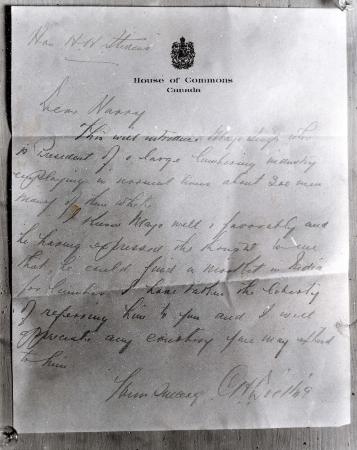 Hon H H Stevens
House of Commons
Canada
Dear Harry
This will introduce Mayo Singh who
is President of a large lumbering industry
employing in normal times about 300 men
many of them white
I know Mayo well & favorably and
he having expressed the thought to me
that he could find a market in India
for lumber I have taken the liberty
of referring him to you and I will
appreciate any courtesy you may extend
to him
Yours sincerely C H Dickie